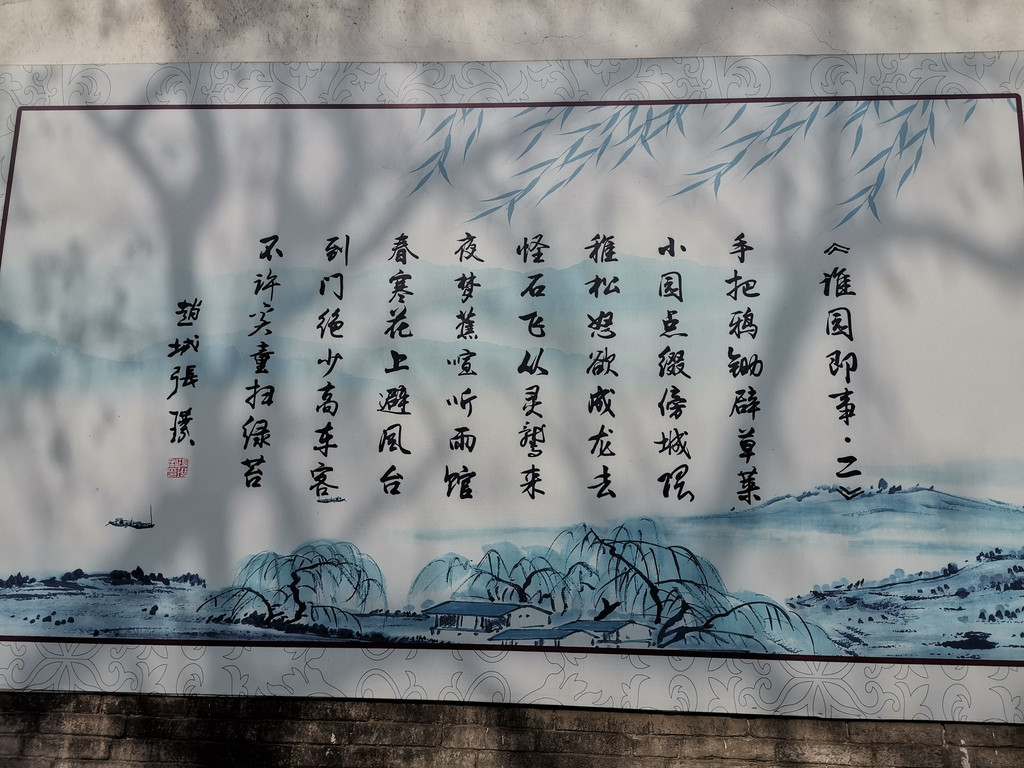 《谁园即事·二》
手把鸦锄辟草莱
小园点缀傍城隈
稚松怒欲成龙去
怪石飞从灵鹫来
夜梦蕉喧听雨馆
春寒花上避风台
到门绝少高车客
不许奚童扫绿苔
趙城張